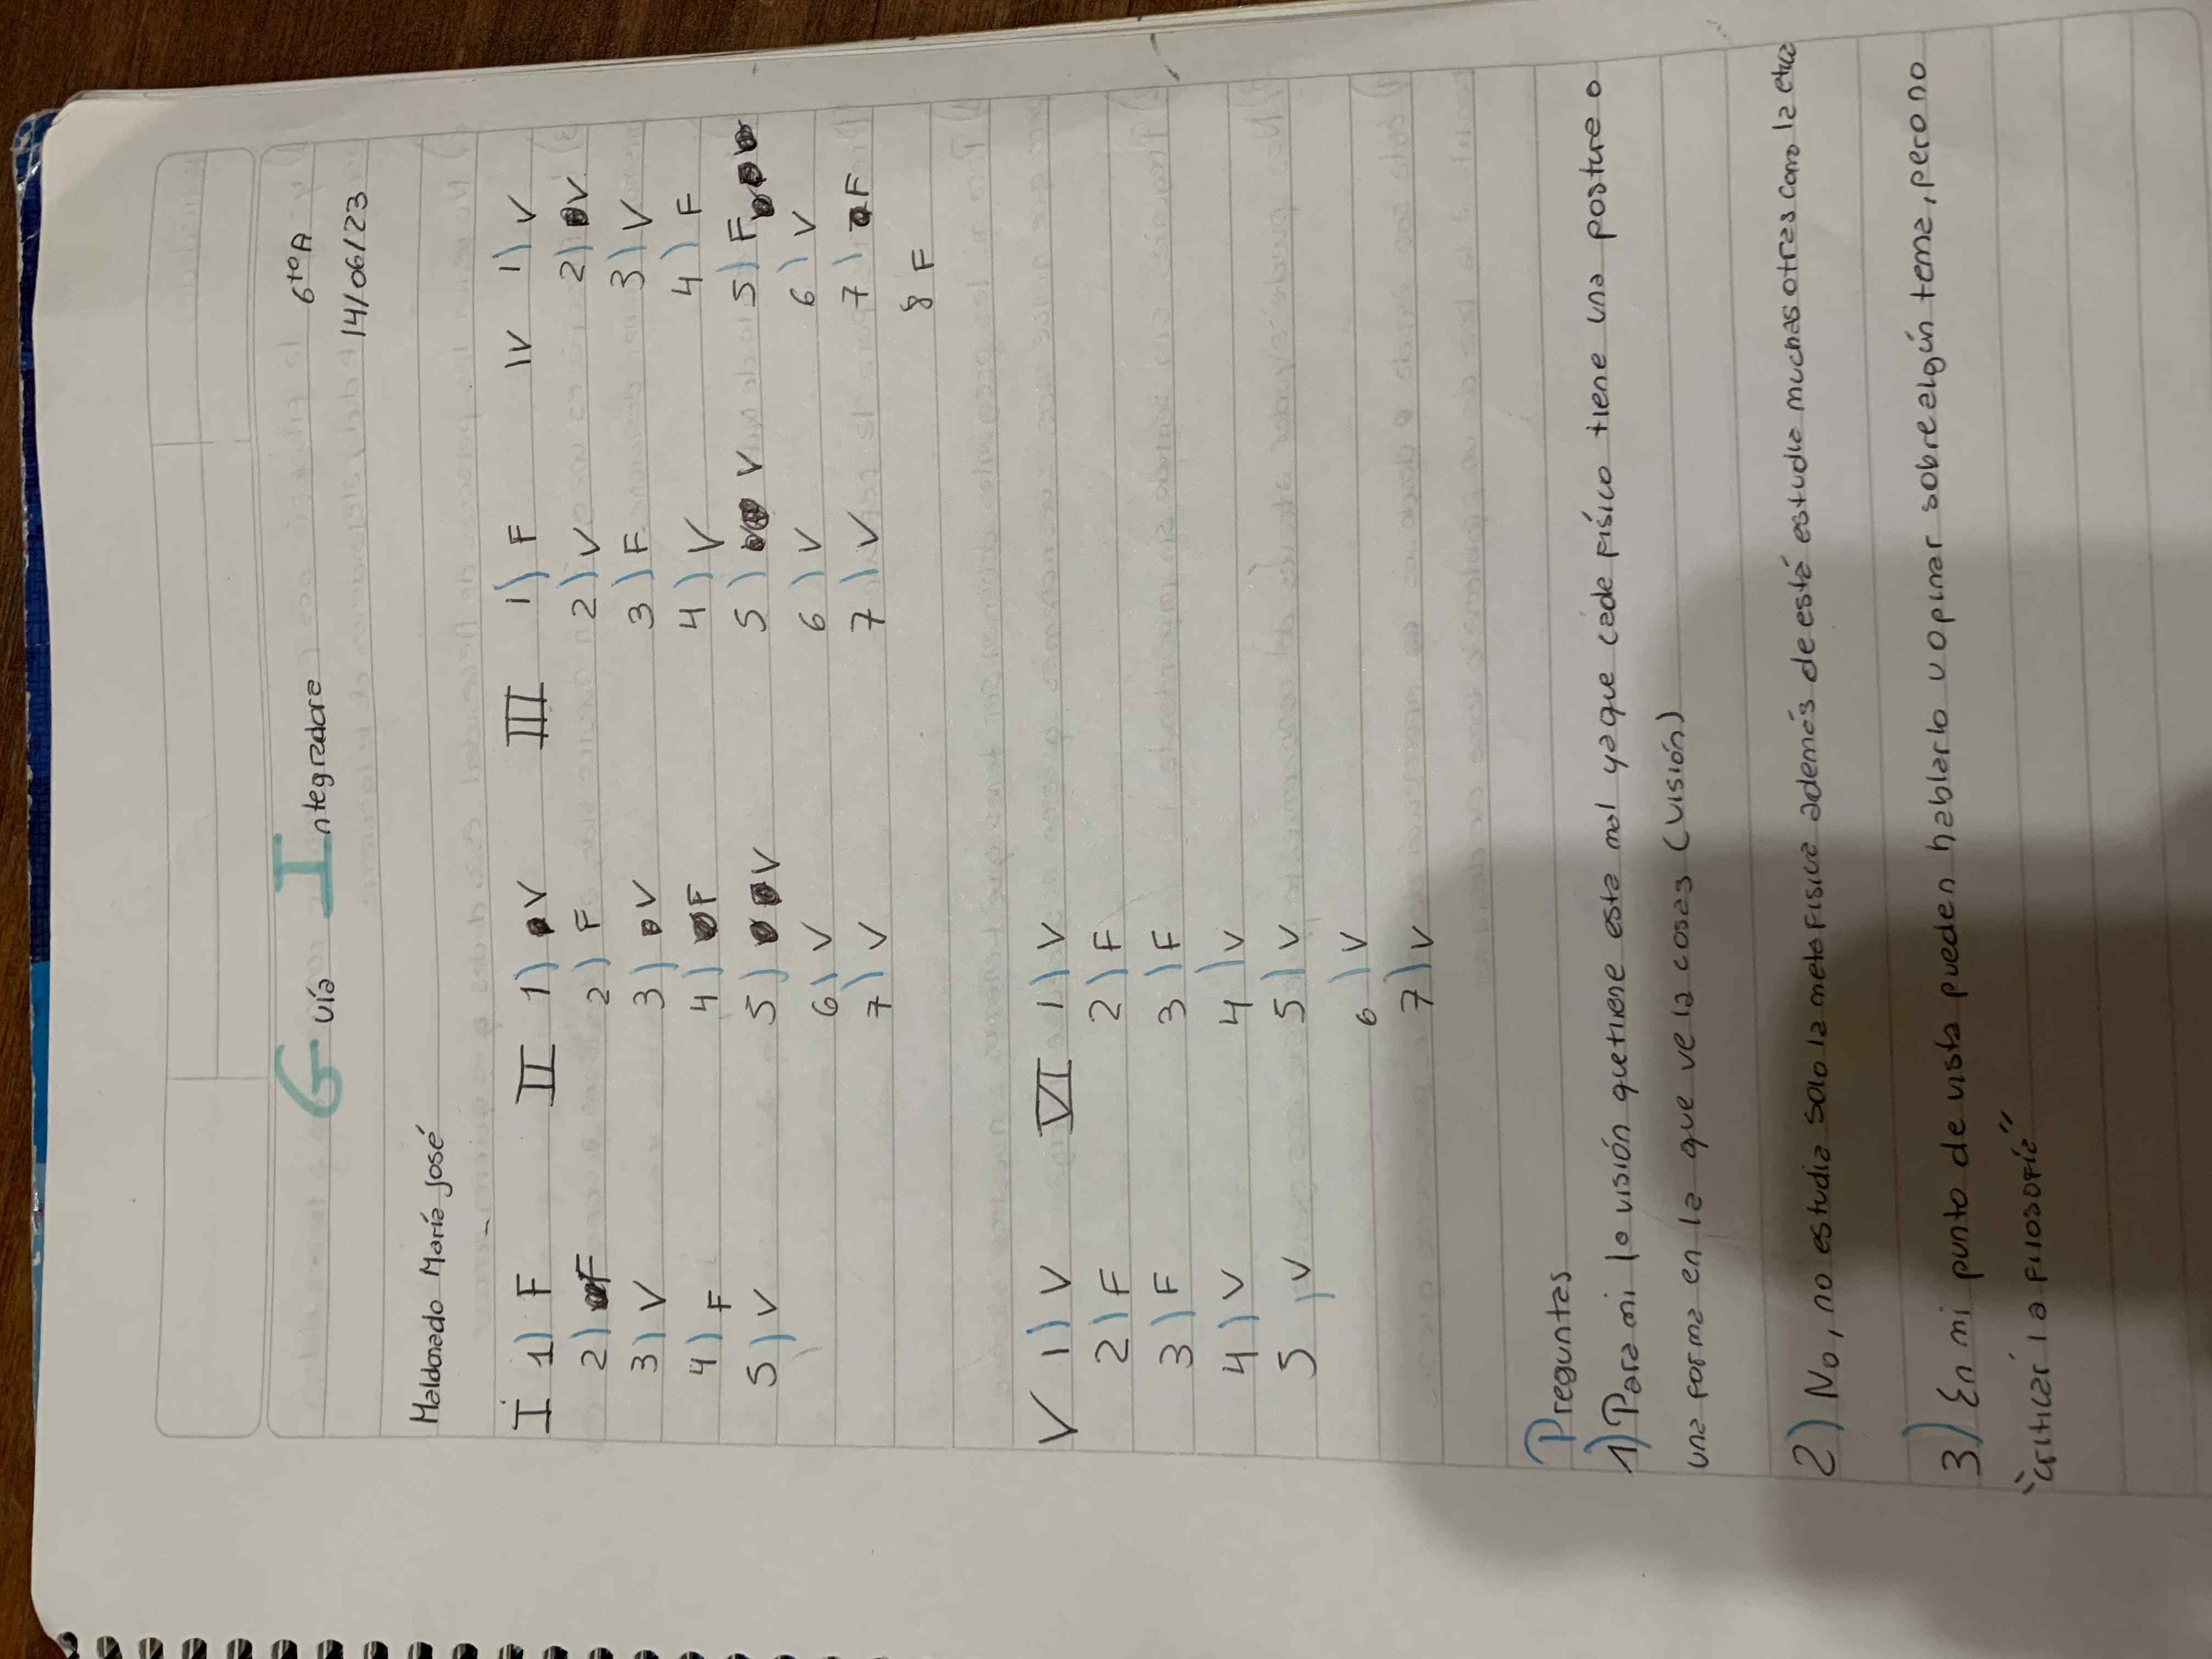 Guía Integradora 6to A
14/06/23
Maldonado María José
I 1) F
2) F
3) V
4) F
5) V
II 1) V
2) F
3) V
4) F
5) V
6) V
7) V
III 1) F
2) V
3) F
4) V
5) V
6) V
7) V
IV 1) V
2) V
3) V
4) F
5) F
6) V
7) F
8 F
V 1) V
2) F
3) F
4) V
5) V
VI 1) V
2) F
3) F
4) V
5) V
6) V
7) V
Preguntas
1) Para mi lo visión que tiene esta mal ya que cade físico tiene una posture o
una forma en la que ve la cosas (visión)
2) No, no estudia solo la metafísica además de está estudia muchas otras como la etica
3) En mi punto de vista pueden hablarlo u opinar sobre algún tema, pero no
"criticar la filosofía"